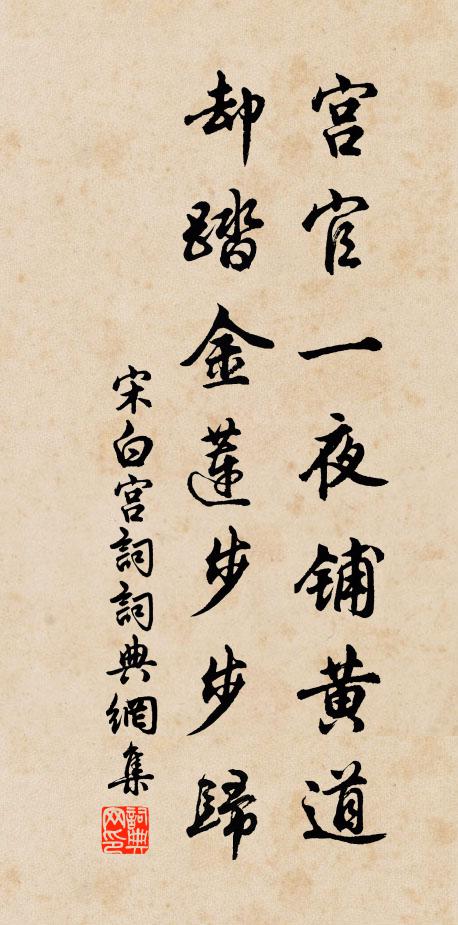 宫官一夜铺黄道
却踏金莲步步歸
宋白宫詞詞典網集
詞典网印